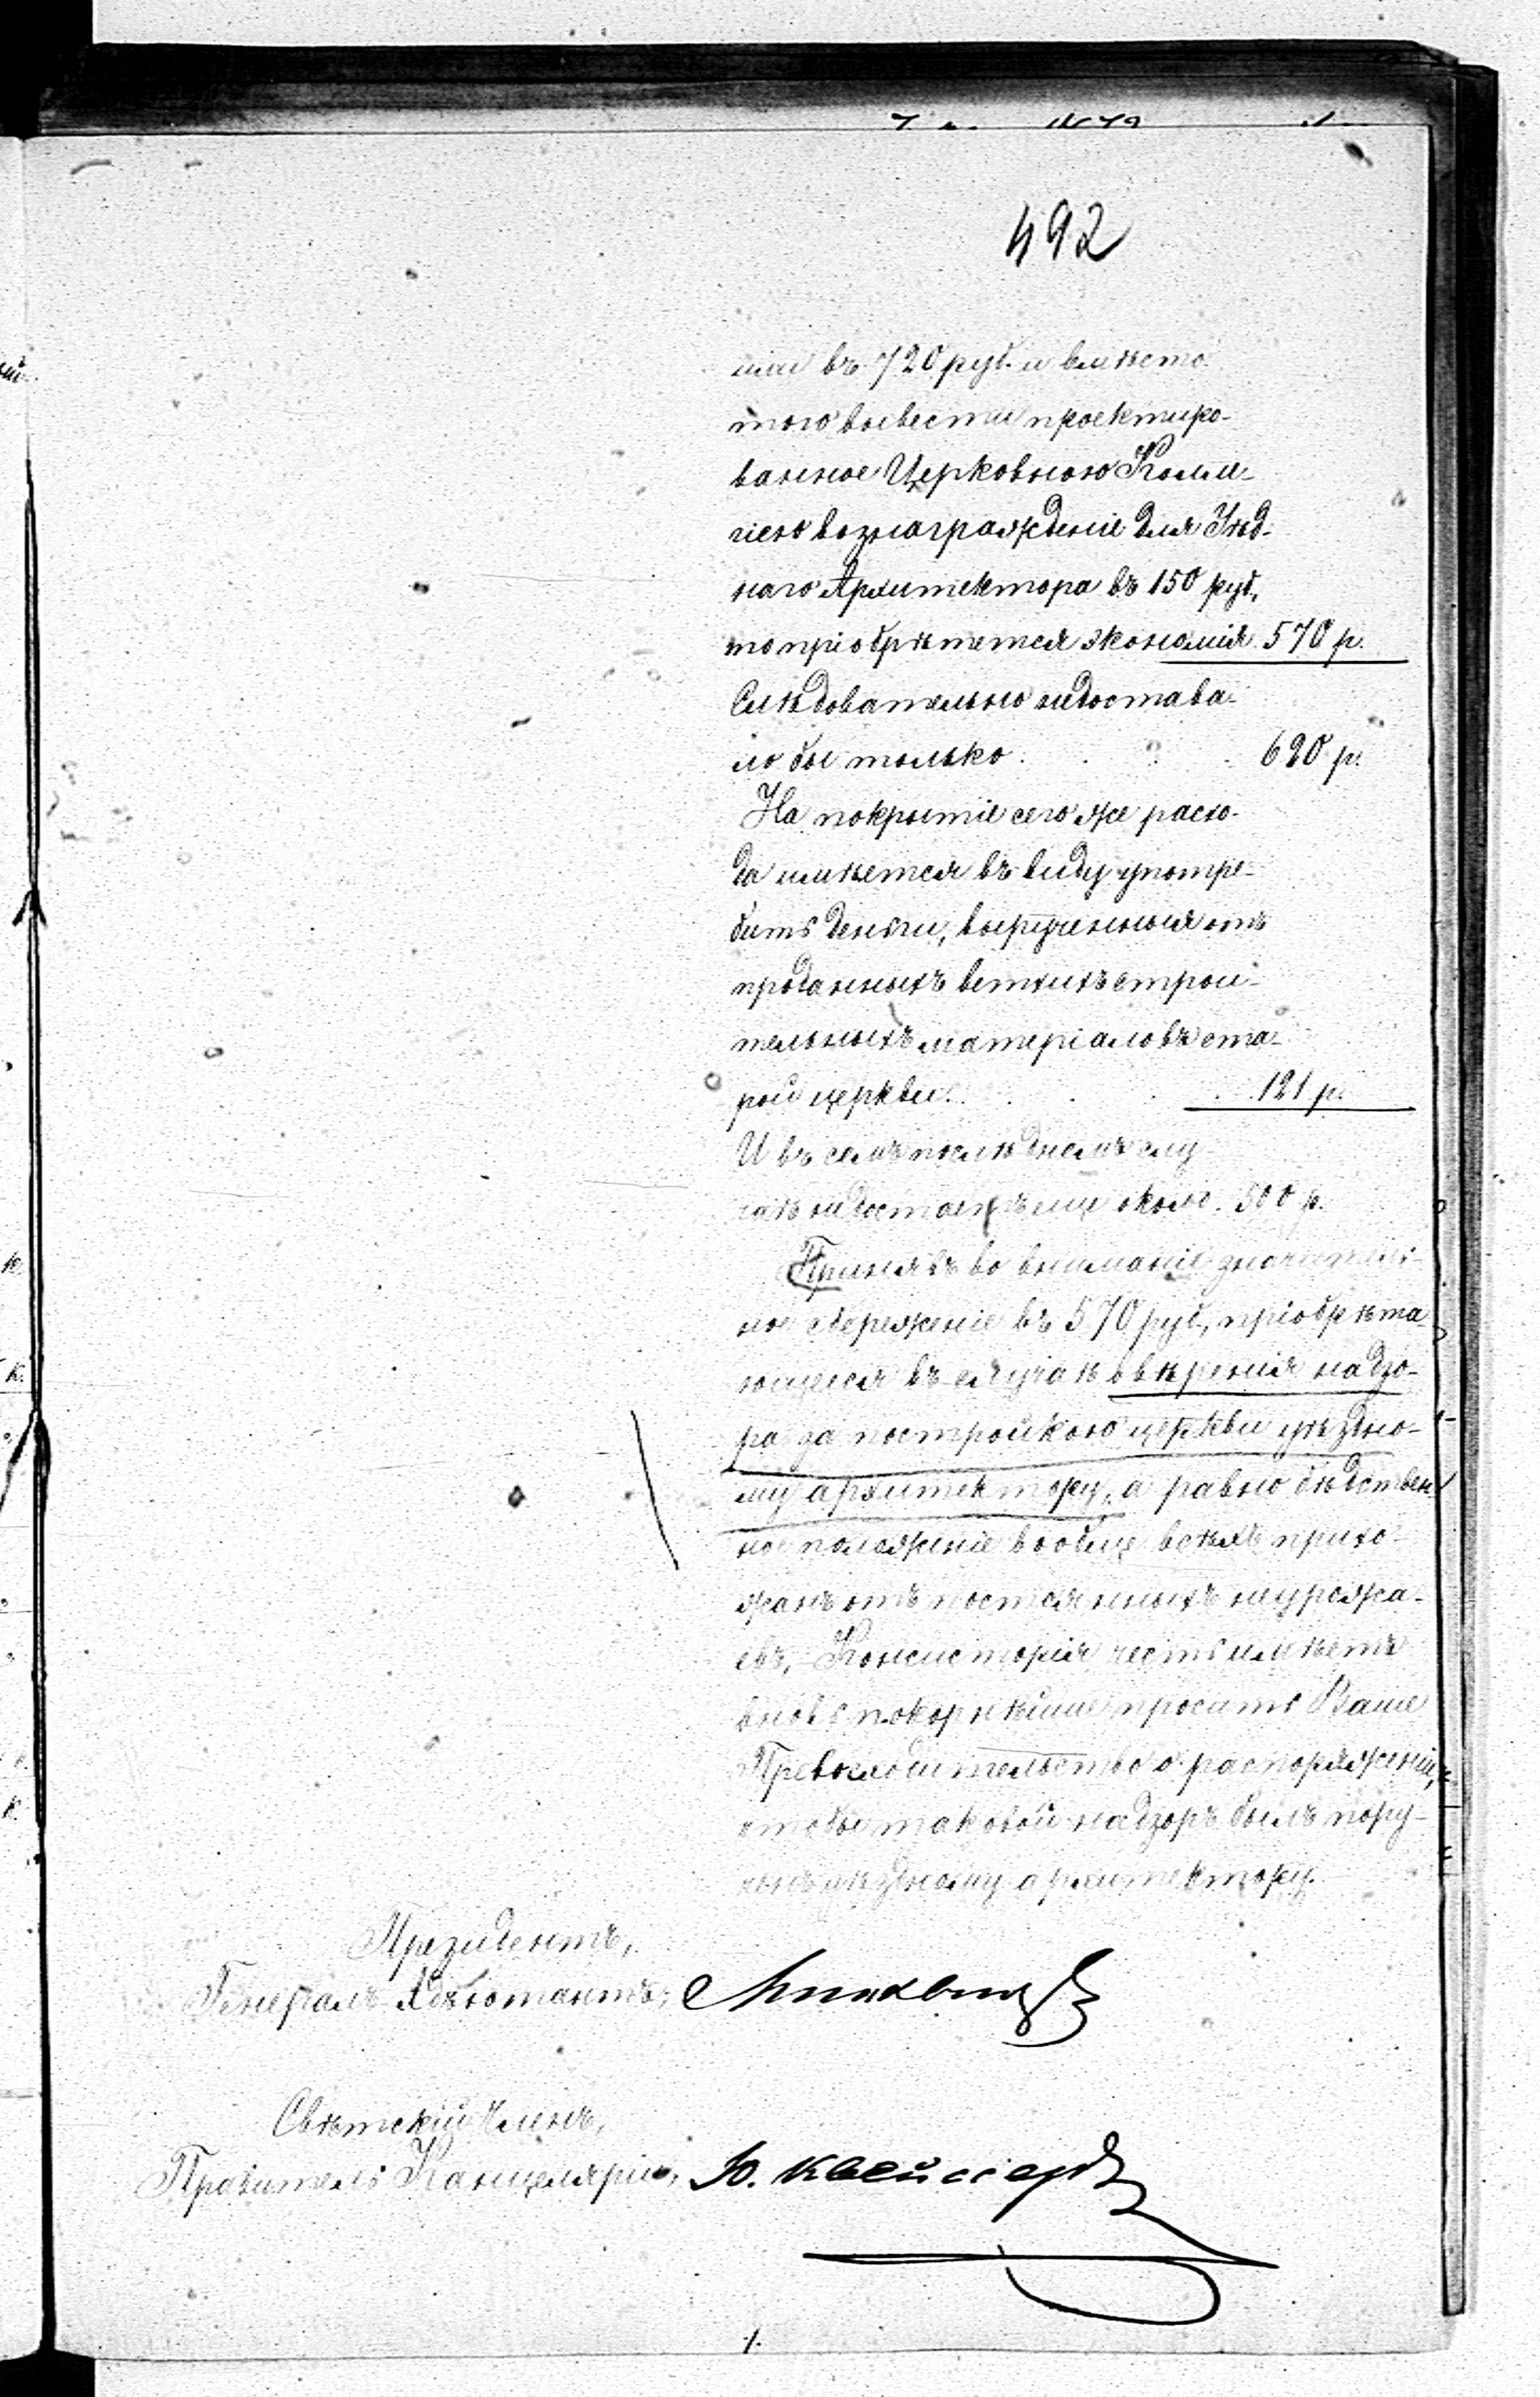 492
ніи въ 720 руб. и вмѣсто
того вывести проектиро-
ванное Церковною Комми-
сіею вознагражденіе для Уѣзд-
наго Архитектора въ 150 руб,
то пріобрѣтется экономія 570 р.
Слѣдовательно недоставa-
ло бы только . . . . 620 р.
На покрытіе сего же расхо-
да имѣется въ виду употре-
бить деньги, вырученныя отъ
проданныхъ ветхихъ строи-
тельныхъ матеріаловъ ста-
рой церкви . . . . 121 р.
И въ семъ послѣднемъ слу-
чаѣ недостаетъ еще около 500 р.
Принявъ во вниманіе значитель-
ное сбереженіе въ 570 руб, пріобрѣта-
ющееся въ случаѣ ввѣренія надзо-
ра за постройкою церкви уѣздно-
му архитектору, а равно бѣдствен-
ное положеніе вообще всѣхъ прихо-
жанъ отъ постоянныхъ неурожа-
евъ, Консисторія честь имѣетъ
вновь покорнѣйше просить Ваше
Превосходительство о распоряженіи,
чтобы таковой надзоръ былъ пору-
ченъ уѣздному архитектору.
Президентъ,
Генералъ-Адъютантъ,
Свѣтскій Членъ,
Правитель Канцеляріи, Ю. Квейссеръ